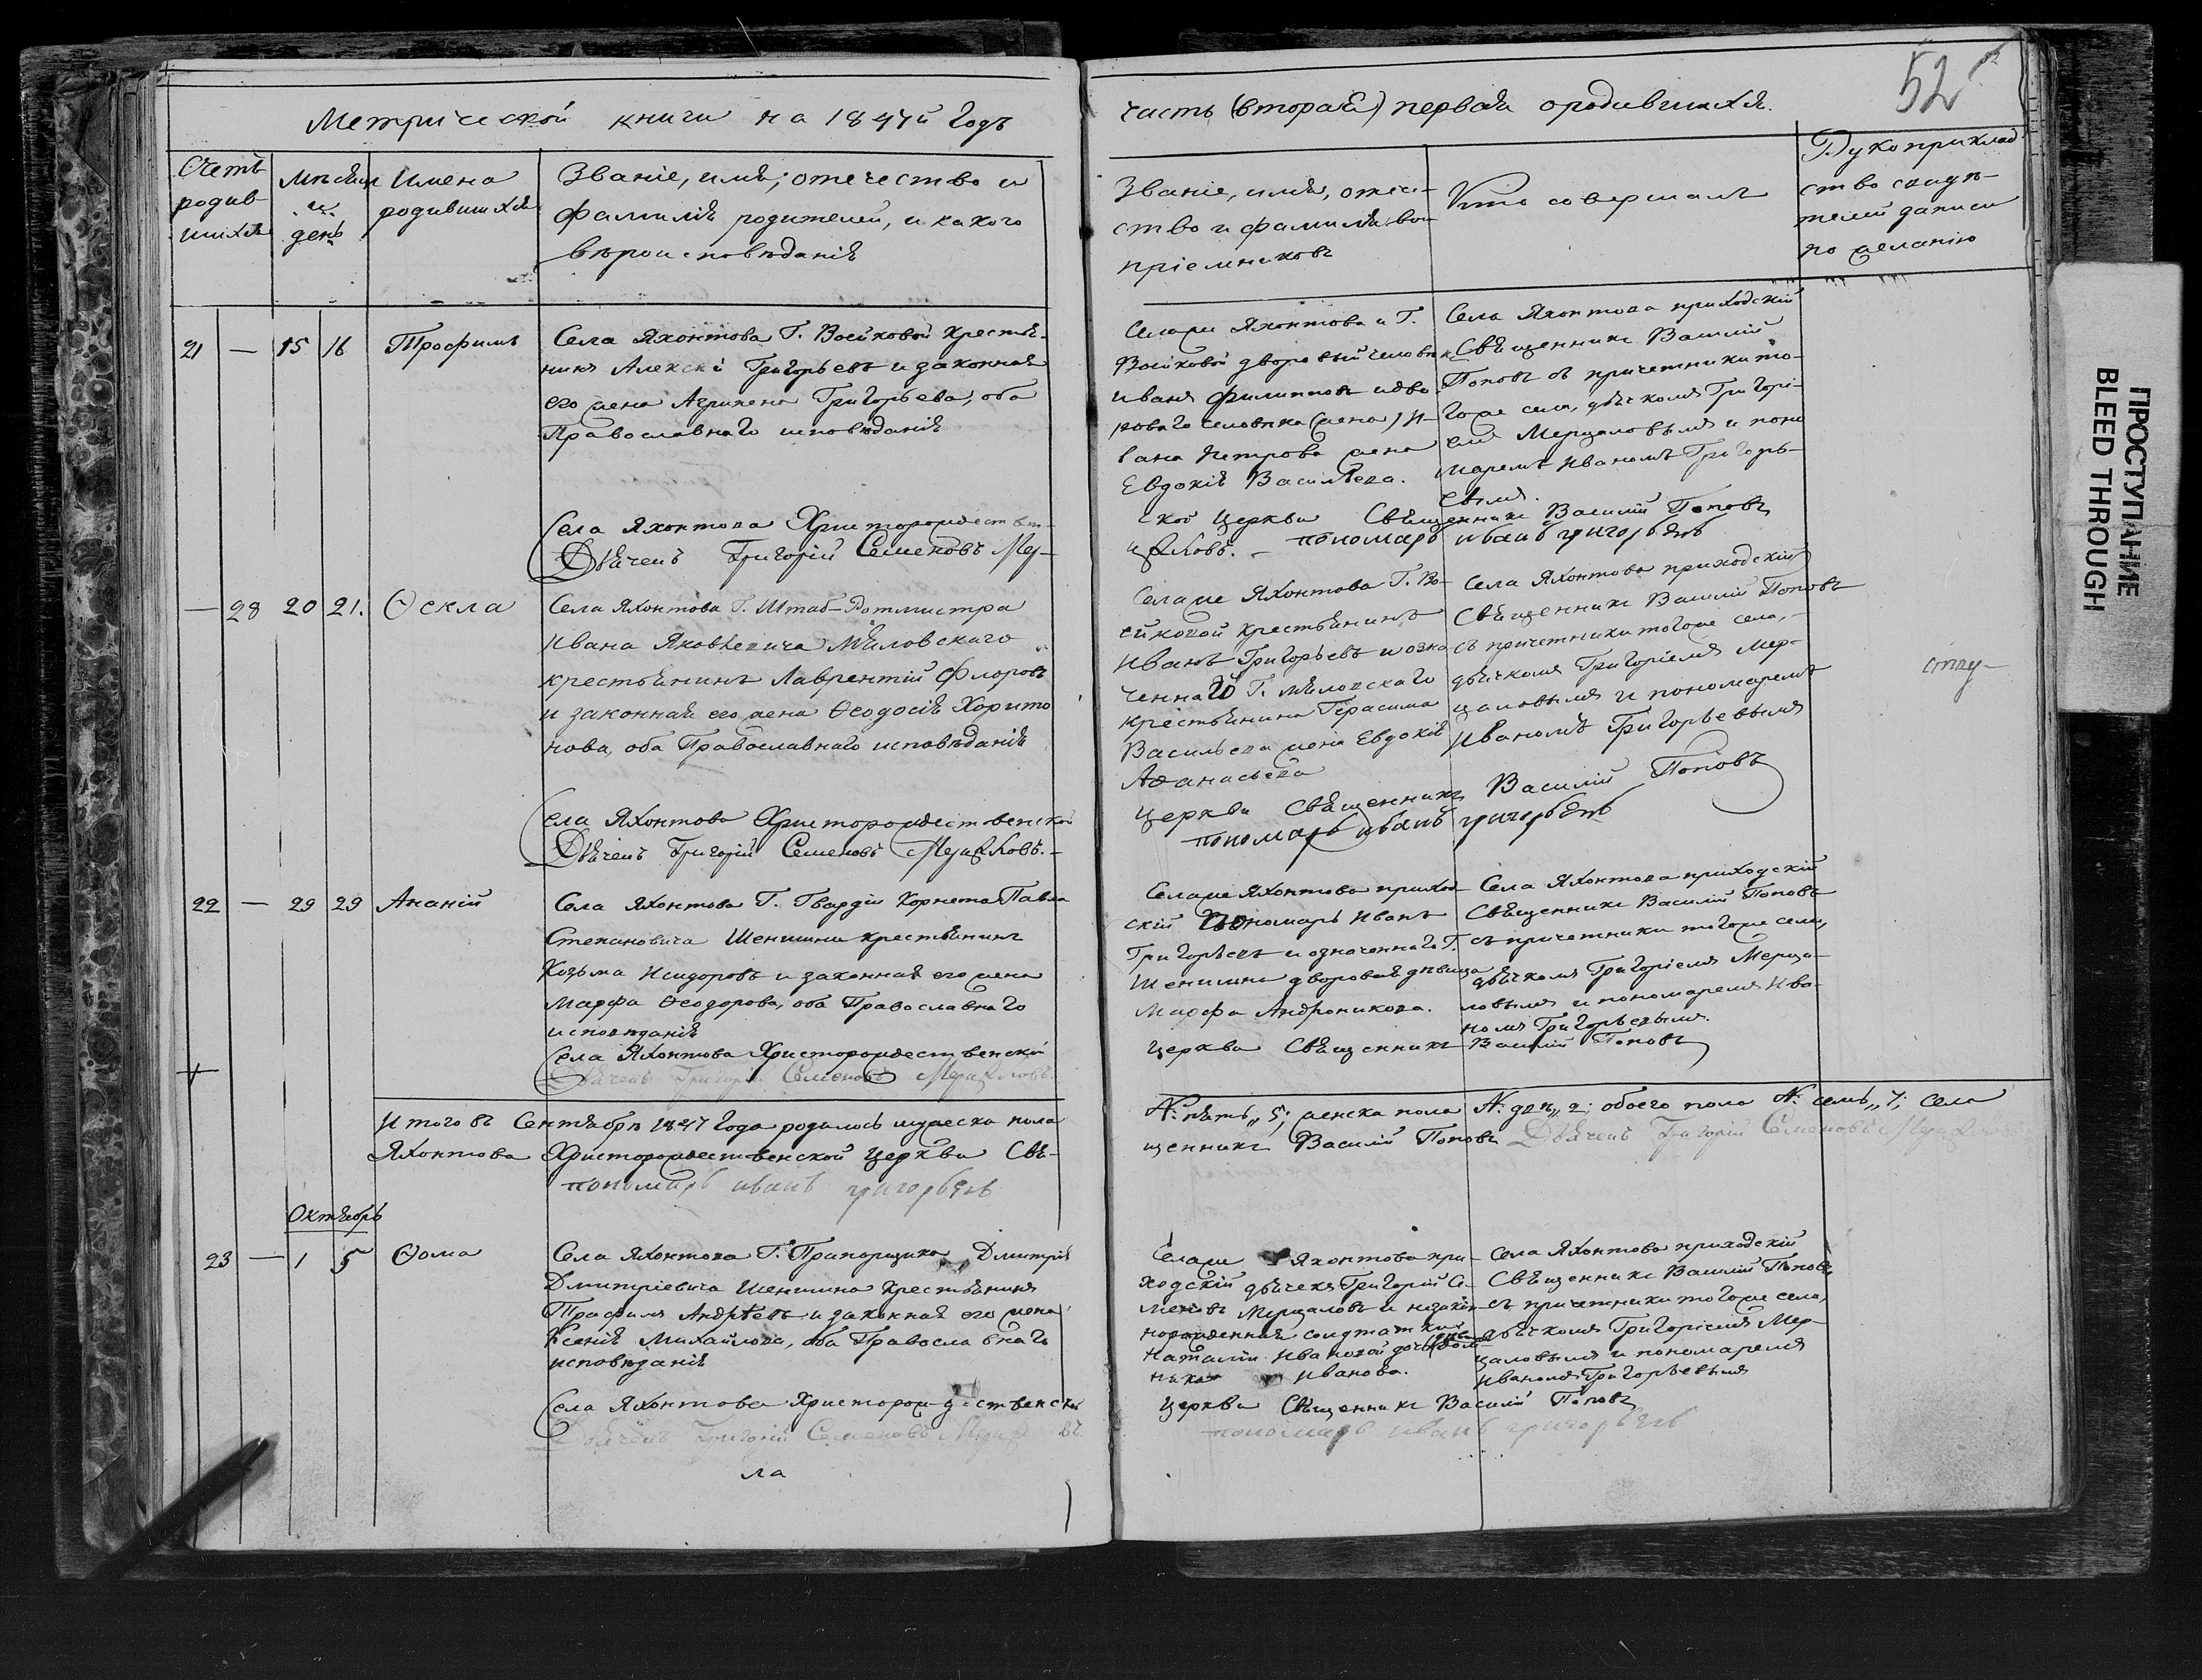 52
Метрической книги на 1847й Годъ
часть (вторая) первая о родившихся.
Счетъ родив-шихся
Мѣсяцъ и день
Имена родившихся
Званіе, имя, отечество и
фамилія родителей, и какого
вѣроисповѣданія
Званіе, имя, отече-
ство и фамилія вос-
пріемниковъ
Кто совершалъ
Рукоприклад
ство свидѣ-
телей записи
по желанію
21 — 15 16 Трофимъ
Села Яхонтова Г. Воейковой крестья-
нинъ Алексѣй Григорьевъ и законная
его жена Агрипена Григорьева, оба
Православнаго исповѣданія
Села Яхонтова Христорождествен-
Дьячекъ Григорій Семеновъ Мер-
Села же Яхонтова и Г.
Воейковой дворовый человѣкъ
Иванъ Филипповъ и дво-
роваго человѣка (жена) И-
вана Петрова жена
Евдокія Васильева.
ской Церкви Священникъ Василій Поповъ
цаловъ. — пономарь иванъ григорьевъ
Села Яхонтова приходскій
Священникъ Василій
Поповъ съ причетники то-
гоже села, дьячкомъ Григорі-
емъ Мерцаловымъ и поно
маремъ Иваномъ Григорь-
евымъ.
— 28 20 21. Ѳекла
Села Яхонтова Г. Штаб-Ротмистра
Ивана Яковлевича Мяловскаго
крестьянинъ Лаврентій Флоровъ
и законная его жена Ѳеодосія Харито
нова, оба Православнаго исповѣданія
Села Яхонтова Христорождественской
Дьячекъ Григорій Семеновъ Мерцаловъ. —
Села же Яхонтова Г. Во-
ейковой крестьянинъ
Иванъ Григорьевъ и озна-
ченнаго Г. Мяловскаго
крестьянина Герасима
Васильева жена Евдокія
Аѳанасьева
Церкви Священникъ Василій Поповъ
пономарь иванъ григорьевъ
Села Яхонтова приходскій
Священникъ Василій Поповъ
съ причетники тогоже села, —
дьячкомъ Григоріемъ Мер-
цаловымъ и пономаремъ
Иваномъ Григорьевымъ
22 — 29 29 Ананій
Села Яхонтова Г. Гвардіи Корнета Павла
Степановича Шеншина крестьянинъ
Козьма Исидоровъ и законная его жена
Марфа Ѳеодорова, оба Православнаго
исповѣданія
Села Яхонтова Христорождественской
Дьячекъ Григорій Семеновъ Мерцаловъ.
Села же Яхонтова приход-
скій Пономарь Иванъ
Григорьевъ и означеннаго Г.
Шеншина дворовая дѣвица
Марфа Андроникова.
Церкви Священникъ Василій Поповъ
Села Яхонтова приходскій
Священникъ Василій Поповъ
съ причетники тогоже села,
дьячкомъ Григоріемъ Мерца-
ловымъ и пономаремъ Ива-
номъ Григорьевымъ.
Итого въ Сентябрѣ 1847 года родилось мужеска пола
№: пять „5; женска пола №: двѣ „2; обоего пола №: семь „7; Села
Яхонтова Христорождественской Церкви Свя-
щенникъ Василій Поповъ Дьячекъ Григорій Семеновъ Мерцаловъ
пономарь иванъ григорьевъ
Октябрь
23 — 1 5 Ѳома
Села Яхонтова Г. Прапорщика „ Дмитрія
Дмитріевича Шеншина крестьянинъ
Трофимъ Андрѣевъ и законная его жена
Ксенія Михайлова, оба Православнаго
исповѣданія
Села Яхонтова Христорождественской
Дьячекъ Григорій Семеновъ Мерца въ.
ла
Села же Яхонтова при-
ходскій дьячекъ Григорій Се-
меновъ Мерцаловъ и незакон-
норожденная солдатки
Наталіи Ивановой дочь
Иванова.
Церкви Священникъ Василій Поповъ
пономарь иванъ григорьевъ
Села Яхонтова приходскій
Священникъ Василій Поповъ
съ причетники тогоже села,
дьячкомъ Григоріемъ Мер-
цаловымъ и пономаремъ
Иваномъ Григорьевымъ
ПРОСТУПАНИЕ
BLEED THROUGH